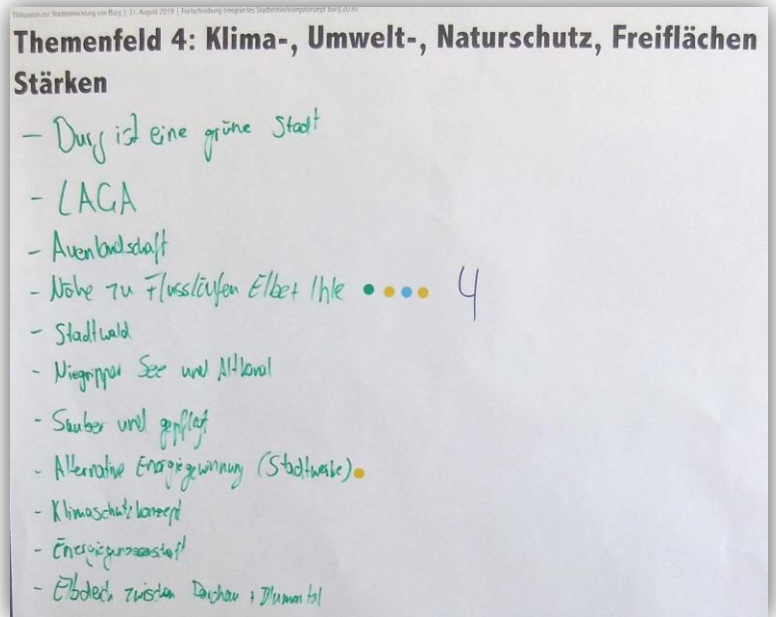 Diskussion zur Stadtentwicklung von Burg | 31. August 2019 | Fortschreibung Integriertes Stadtentwicklungskonzept Burg 2030
Themenfeld 4: Klima-, Umwelt-, Naturschutz, Freiflächen
Stärken
- Burg ist eine grüne Stadt
- LAGA
- Auenlandschaft
- Nähe zu Flussläufen Elbe + Ihle 4
- Stadtwald
- Niegripper See und Altkanal
- Sauber und gepflegt
- Alternative Energiegewinnung (Stadtwerke)
- Klimaschutzkonzept
- Energiegenossenschaft
- Elbdeich zwischen + Blumental